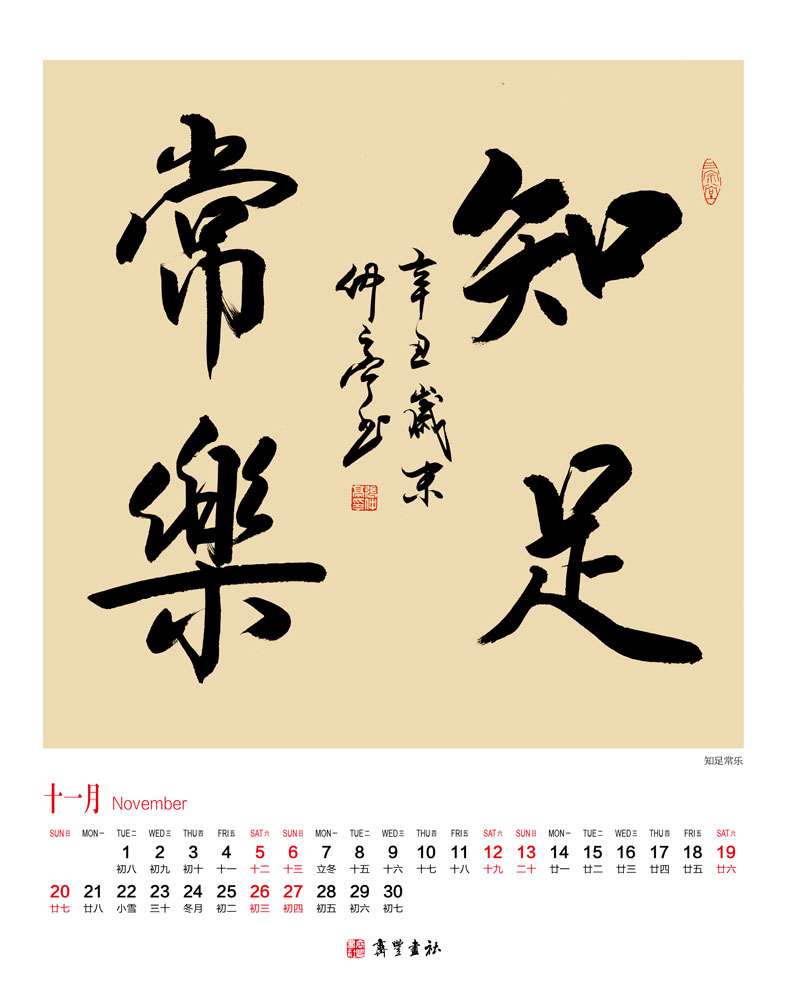 知足
常樂
辛丑歲末
仲亭书
知足常乐
十一月 November
SUN日 MON一 TUE二 WED三 THU四 FRI五 SAT六 SUN日 MON一 TUE二 WED三 THU四 FRI五 SAT六 SUN日 MON一 TUE二 WED三 THU四 FRI五 SAT六
1 2 3 4 5 6 7 8 9 10 11 12 13 14 15 16 17 18 19
初八 初九 初十 十一 十二 十三 立冬 十五 十六 十七 十八 十九 二十 廿一 廿二 廿三 廿四 廿五 廿六
20 21 22 23 24 25 26 27 28 29 30
廿七 廿八 小雪 三十 冬月 初二 初三 初四 初五 初六 初七